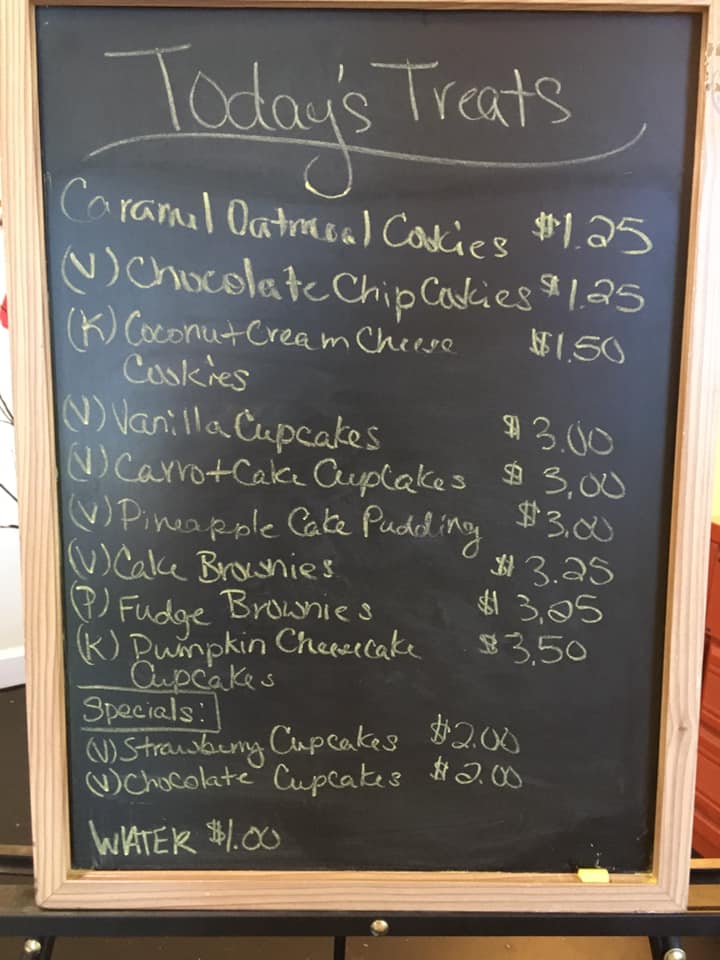 Today's Treats
Caramel Oatmeal Cookies $1.25
(V) Chocolate Chip Cookies $1.25
(K) Coconut Cream Cheese $1.50
Cookies
(V) Vanilla Cupcakes $3.00
(V) Carrot Cake Cupcakes $3.00
(V) Pineapple Cake Pudding $3.00
(V) Cake Brownies $3.25
(P) Fudge Brownies $3.25
(K) Pumpkin Cheesecake $3.50
Cupcakes
Specials:
(V) Strawberry Cupcakes $2.00
(V) Chocolate Cupcakes $2.00
WATER $1.00